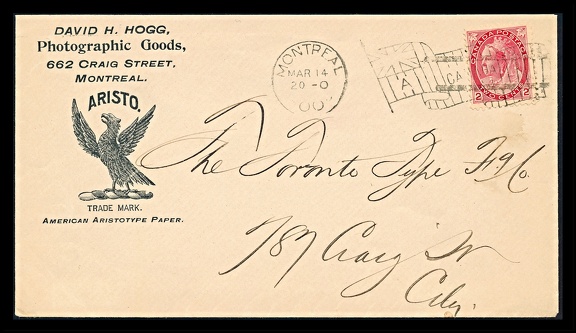 DAVID H. HOGG,
Photographic Goods,
662 CRAIG STREET,
MONTREAL.
ARISTO.
TRADE MARK.
AMERICAN ARISTOTYPE PAPER.
MONTREAL
MAR 14
20 - 0
00
A
CANADA POSTAGE
2 2
TWO CENTS
The Toronto Type Fy Co.
787 Craig St
City.